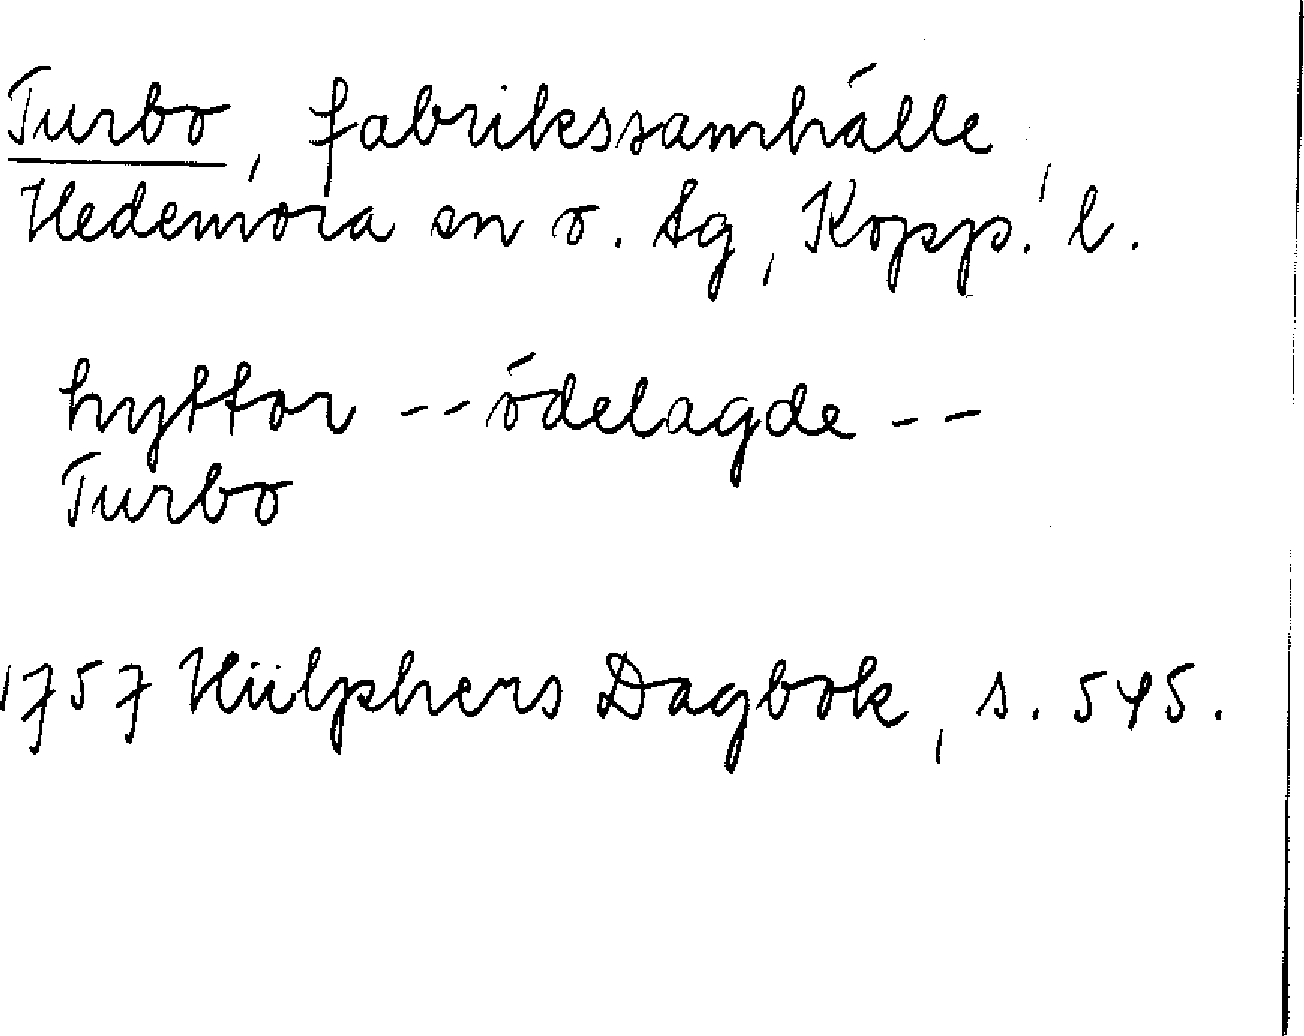 Turbo, fabrikssamhälle,
Hedemora sn o. tg, Kopp. l.
hyttor -- ödelagde --
Turbo
1757 Hülphers Dagbok, s. 545.